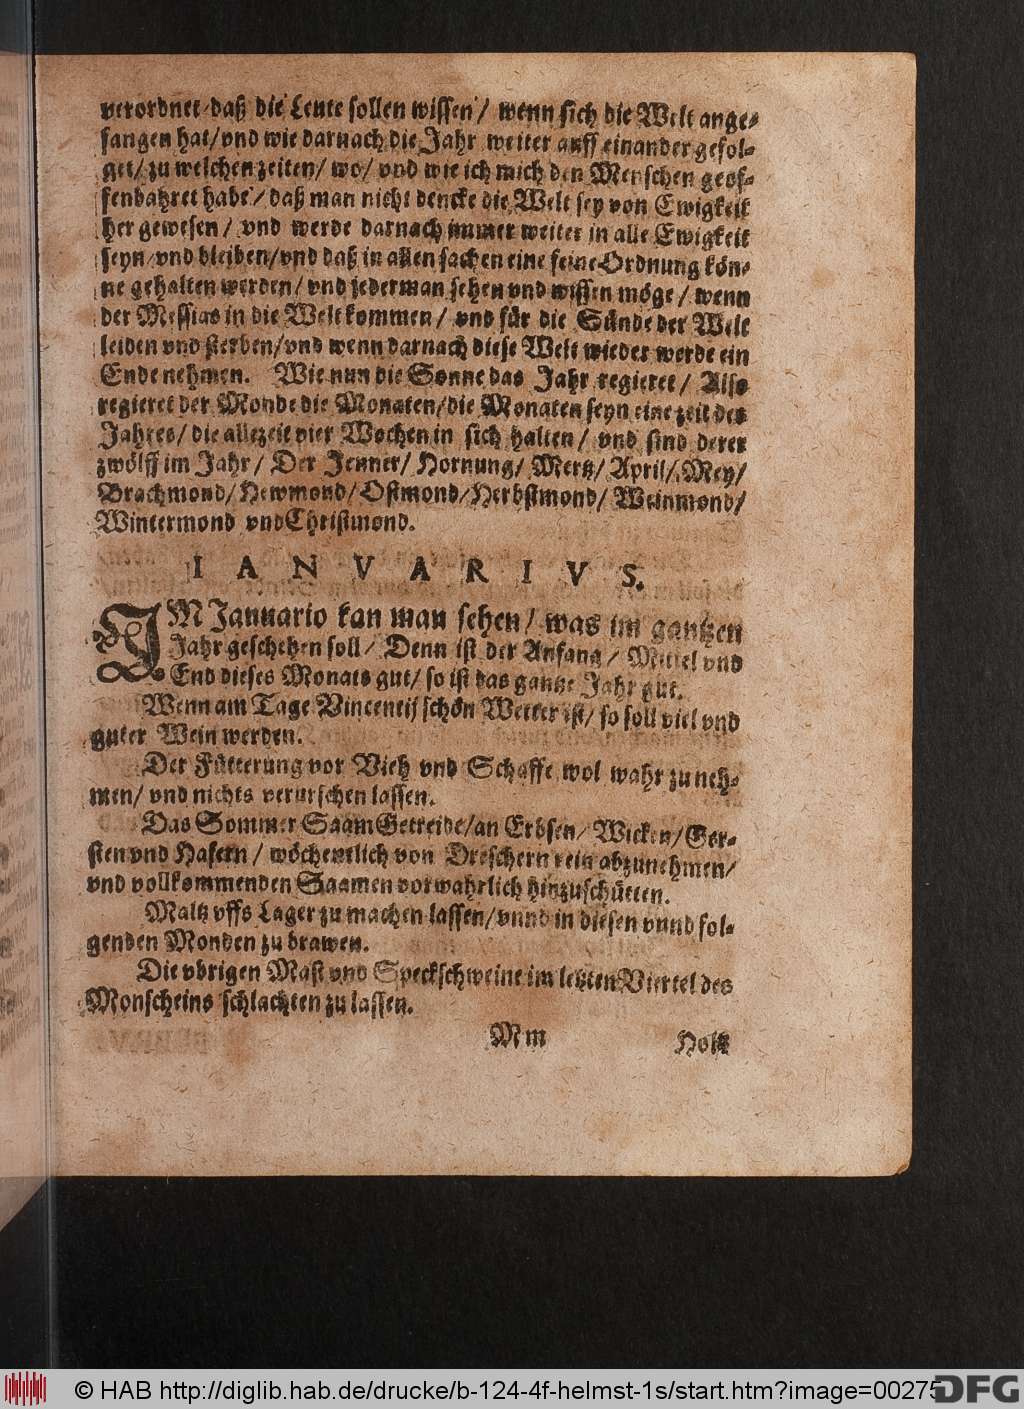 verordnet/daß die Leute sollen wissen/ wenn sich die Welt ange-
fangen hat/vnd wie darnach die Jahr weiter auff einander gefol-
get/ zu welchen zeiten/ wo/ vnd wie ich mich den Menschen geof-
fenbahret habe/ daß man nicht dencke die Welt sey von Ewigkeit
her gewesen/ vnd werde darnach immer weiter in alle Ewigkeit
seyn/vnd bleiben/vnd daß in allen sachen eine feine Ordnung kön-
ne gehalten werden/ vnd jederman sehen vnd wissen möge/ wenn
der Messias in die Welt kommen/ vnd für die Sünde der Welt
leiden vnd sterben/vnd wenn darnach diese Welt wieder werde ein
Ende nehmen. Wie nun die Sonne das Jahr regieret/ Also
regieret der Monde die Monaten/die Monaten seyn eine zeit des
Jahres/ die allezeit vier Wochen in sich halten/ vnd sind derer
zwölff im Jahr/ Der Jenner/ Hornung/ Mertz/ April/ Mey/
Brachmond/ Hewmond/ Ostmond/Herbstmond/ Weinmond/
Wintermond vnd Christmond.
IANVARIVS.
IM Januario kan man sehen/ was im gantzen
Jahr geschehen soll/ Denn ist der Anfang/ Mittel vnd
End dieses Monats gut/ so ist das gantze Jahr gut.
Wenn am Tage Vincentij schön Wetter ist/ so soll viel vnd
guter Wein werden.
Der Fütterung vor Vieh vnd Schaffe wol wahr zu neh-
men/ vnd nichts verurschen lassen.
Das Sommer Saam Getreide/an Erbsen/ Wicken/ Ger-
sten vnd Hafern/ wöchentlich von Dreschern rein abzunehmen/
vnd vollkommenden Saamen vorwahrlich hinzuschütten.
Maltz vffs Lager zu machen lassen/vnnd in diesen vnnd fol-
genden Monden zu brawen.
Die vbrigen Mast vnd Speckschweine im letzten Viertel des
Monscheins schlachten zu lassen.
Mm Holtz
© HAB http://diglib.hab.de/drucke/b-124-4f-helmst-1s/start.htm?image=00275
DFG